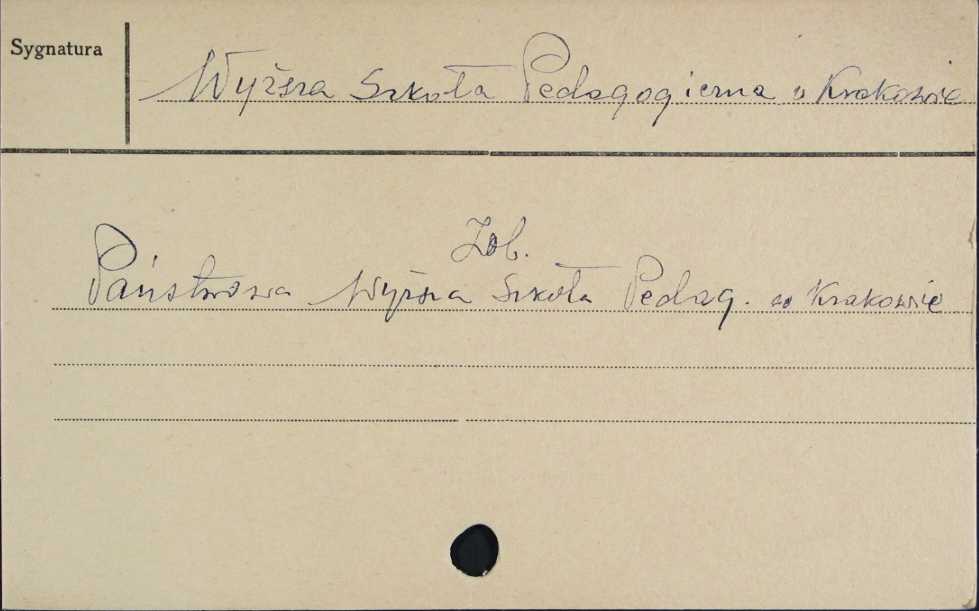 Sygnatura
Wyższa Szkoła Pedagogiczna w Krakowie
Zob.
Państwowa Wyższa Szkoła Pedag. w Krakowie